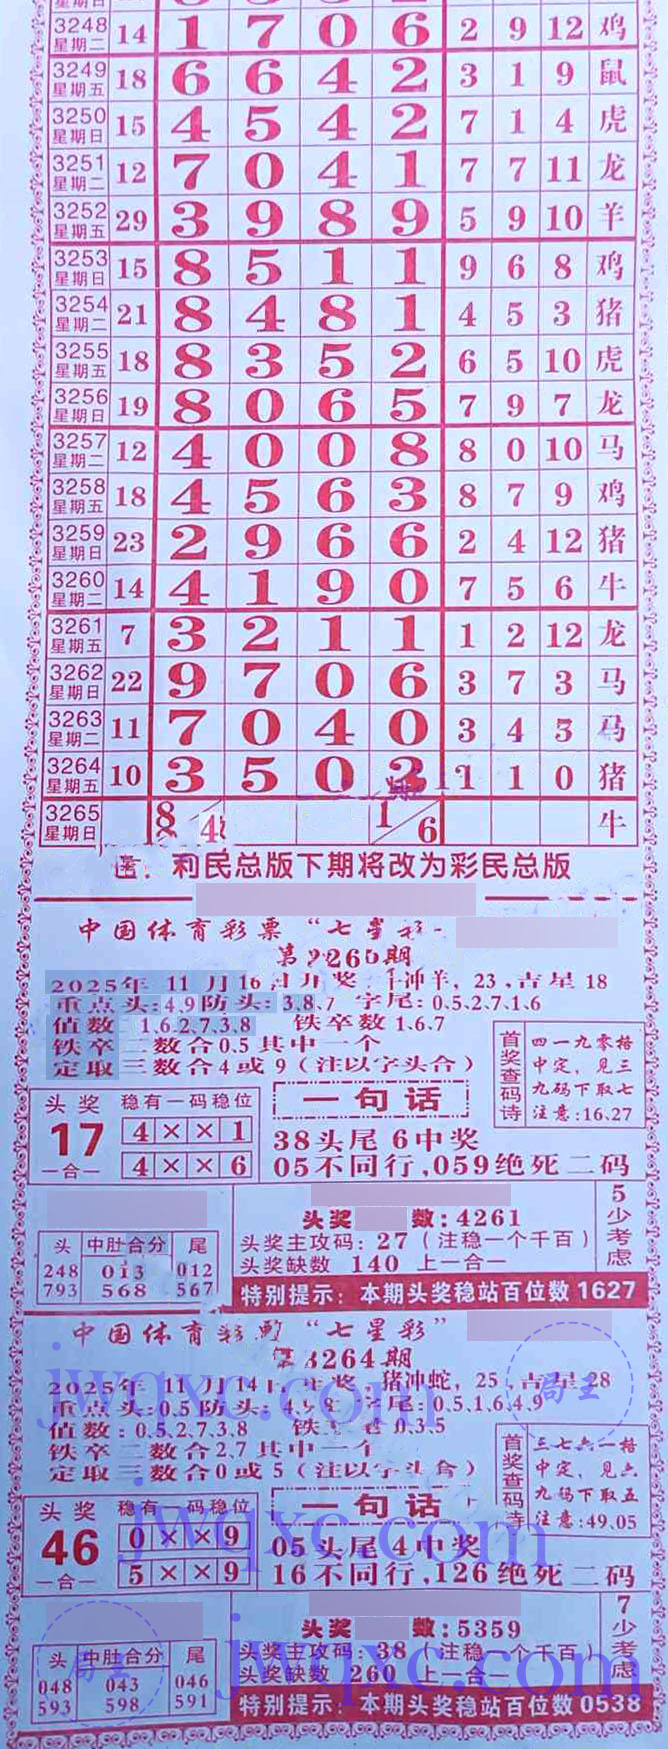 星期日
3248 星期二 14 1 7 0 6 2 9 12 鸡
3249 星期五 18 6 6 4 2 3 1 9 鼠
3250 星期日 15 4 5 4 2 7 1 4 虎
3251 星期二 12 7 0 4 1 7 7 11 龙
3252 星期五 29 3 9 8 9 5 9 10 羊
3253 星期日 15 8 5 1 1 9 6 8 鸡
3254 星期二 21 8 4 8 1 4 5 3 猪
3255 星期五 18 8 3 5 2 6 5 10 虎
3256 星期日 19 8 0 6 5 7 9 7 龙
3257 星期二 12 4 0 0 8 8 0 10 马
3258 星期五 18 4 5 6 3 8 7 9 鸡
3259 星期日 23 2 9 6 6 2 4 12 猪
3260 星期二 14 4 1 9 0 7 5 6 牛
3261 星期五 7 3 2 1 1 1 2 12 龙
3262 星期日 22 9 7 0 6 3 7 3 马
3263 星期二 11 7 0 4 0 3 4 5 马
3264 星期五 10 3 5 0 2 1 1 0 猪
3265 星期日 8 4 1/6 牛
利民总版下期将改为彩民总版
中国体育彩票“七星彩
第3265期
2025年 11月16日开奖 牛冲羊, 23,吉星18
重点头:4,9防头:3,8,7 字尾:0.5.2.7.1.6
值数 1,6.2,7,3,8 铁卒数1.6.7
铁卒二数合0.5其中一个
定取三数合4或9(注以字头合)
首奖查码诗
四一九零搭
中定,见三
九码下取七
注意:16.27
头奖 稳有一码稳位
17
一合一
4 × × 1
4 × × 6
一句话
38头尾6中奖
05不同行,059绝死二码
头 中肚合分 尾
248 013 012
793 568 567
头奖 数:4261
头奖主攻码:27(注稳一个千百)
头奖缺数 140 上一合一
5少考虑
特别提示:本期头奖稳站百位数1627
中国体育彩票“七星彩”
第3264期
2025年 11月14日开奖 猪冲蛇, 25,吉星28
重点头:0.5防头:4,9 字尾:0.5.1.6.4.9
值数:0.5.2.7.3.8 铁卒数0.3.5
铁卒二数合2,7其中一个
定取三数合0或5(注以字头合)
首奖查码诗
三七六一搭
中定,见六
九码下取五
注意:49.05
头奖 稳有一码稳位
46
一合一
0 × × 9
5 × × 9
一句话
05头尾4中奖
16不同行,126绝死二码
头 中肚合分 尾
048 043 046
593 598 591
头奖 数:5359
头奖主攻码:38(注稳一个千百)
头奖缺数 260 上一合一
7少考虑
特别提示:本期头奖稳站百位数0538
jwqxc.com
jwqxc.com
jwqxc.com
局王
局王